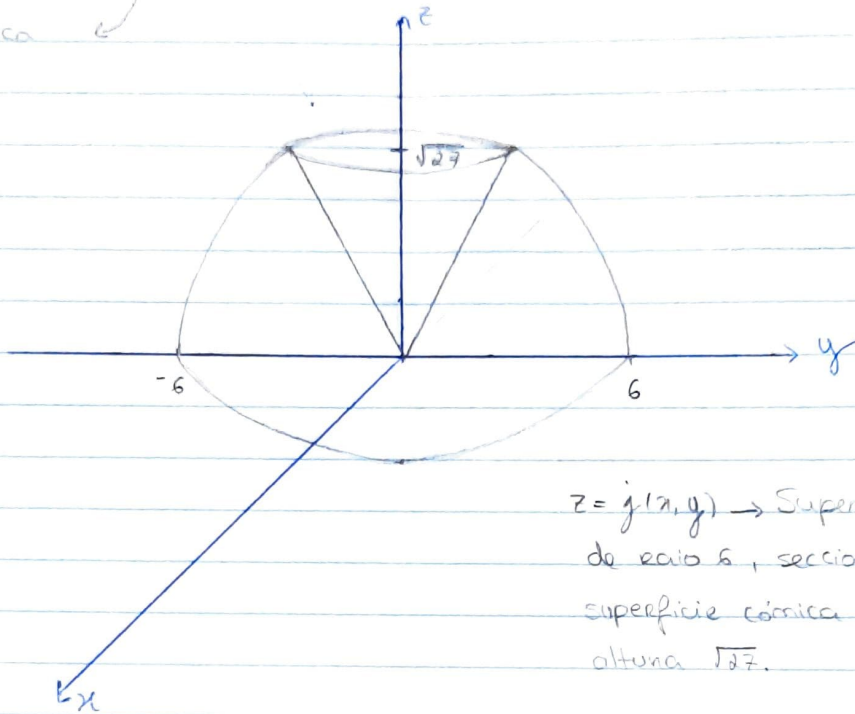 ca
z
√27
y
-6
6
z = j(x,y) → Super
de raio 6, seccio
superfície cónica
altura √27.
x